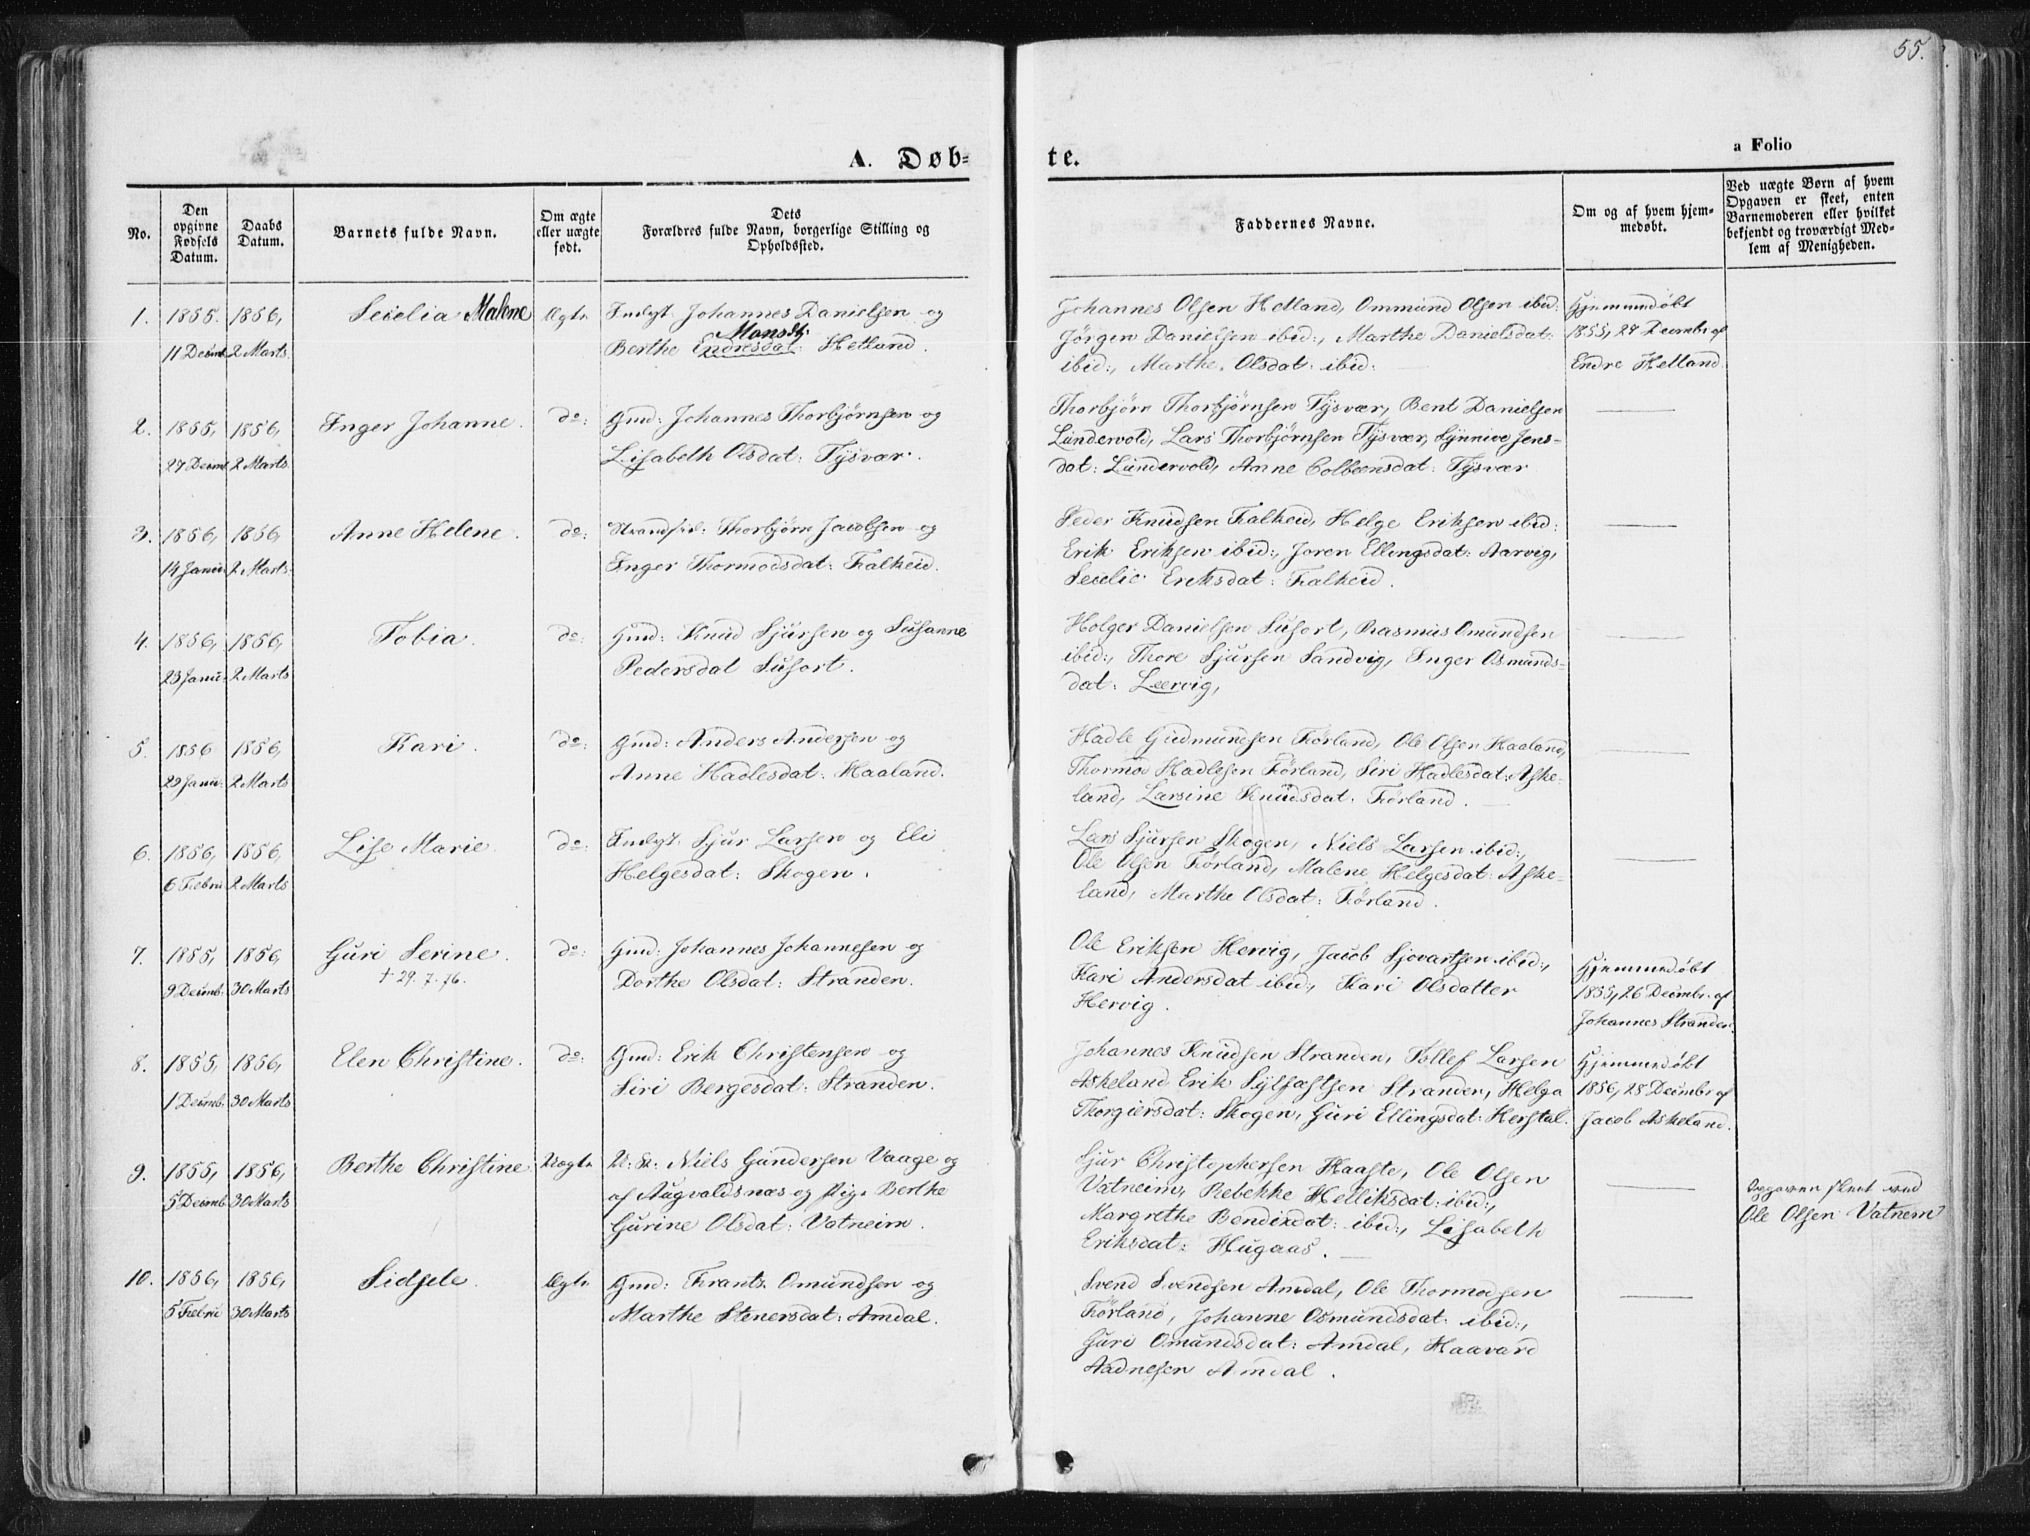 55.
A. Døb=
te.
a Folio
No.
Den
opgivne
Fødsels
Datum.
Daabs
Datum.
Barnets fulde Navn.
Om ægte
eller uægte
født.
Dets
Forældres fulde Navn, borgerlige Stilling og
Opholdssted.
Faddernes Navne.
Om og af hvem hjem-
medøbt.
Ved uægte Børn af hvem
Opgaven er skeet, enten
Barnemoderen eller hvilket
bekjendt og troværdigt Med-
lem af Menigheden.
1. 1855. 1856, Seselia Malene Ægte Indgt. Johannes Danielsen og
Monsdt:
11 Decmb 2 Marts Berthe Endresdat: Hetland.
Johannes Olsen Hetland, Ommund Olsen ibid:
Jørgen Danielsen ibid:, Marthe Danielsdat:
ibid:, Marthe Olsdat: ibid:
Hjemmedøbt
1855, 27 Decembr af
Endre Hetland
2. 1855, 1856, Inger Johanne. do: Gmd: Johannes Thorbjørnsen og
27 Decmb 2 Marts Lisabeth Olsdat: Tysvær.
Thorbjørn Thorbjørnsen Tysvær, Bent Danielsen
Lundervold, Lars Thorbjørnsen Tysvær, Synnive Jens-
dat: Lundervold, Anne Colbeensdat: Tysvær
3. 1856, 1856, Anne Helene. do: Strandsid: Thorbjørn Jacobsen og
14 Janu: 2 Marts Inger Thormodsdat: Falkeid.
Peder Knudsen Falkeid, Helge Eriksen ibid:
Erik Eriksen ibid:, Joren Ellingsdat: Aarvig,
Seselie Eriksdat: Falkeid.
4. 1856, 1856, Tobia. do: Gmd: Knud Sjursen og Susanne
23 Janu: 2 Marts Pedersdat Susort.
Holger Danielsen Susort, Rasmus Omundsen
ibid:, Thore Sjursen Sandvig, Inger Osmunds-
dat: Leervig,
5. 1856 1856, Kari. do: Gmd: Anders Andersen og
29 Janu: 2 Marts Anne Hadlesdat: Haaland.
Hadle Gudmundsen Førland, Ole Olsen Haaland,
Thormod Hadlesen Førland, Siri Hadlesdat: Aske-
land, Larsine Knudsdat: Førland.
6. 1856, 1856, Lise Marie. do: Indgt. Sjur Larsen og Eli
6 Febru 2 Marts Helgesdat: Skogen.
Lars Sjursen Skogen, Niels Larsen ibid:,
Ole Olsen Førland, Malene Helgesdat: Aske-
land, Marthe Olsdat: Førland.
7. 1855, 1856, Guri Serine. do: Gmd: Johannes Johannesen og
† 29.7.76.
9 Decmb: 30 Marts Dorthe Olsdat: Stranden.
Ole Eriksen Hervig, Jacob Sjovartsen ibid:,
Kari Andersdat ibid:, Kari Olsdatter
Hervig.
Hjemmedøbt
1855, 26 Decmbr. af
Johannes Stranden.
8. 1855, 1856, Elen Christine. do: Gmd: Erik Christensen og
1 Decmb. 30 Marts Siri Bergesdat: Stranden.
Johannes Knudsen Stranden, Tollef Larsen
Askeland Erik Sylfæstsen Stranden, Helga
Thorgiersdat: Skogen, Guri Ellingsdat: Herstal.
Hjemmedøbt
1856, 28 Decmbr af
Jacob Askeland.
9. 1855, 1856, Berthe Christine Uægte U: Sk: Niels Gundersen Vaage og
5 Decmb 30 Marts af Augvaldsnæs og Pige Berthe
Gurine Olsdat: Vatneim.
Sjur Christophersen Haaste, Ole Olsen
Vatneim, Rebekke Helliksdat: ibid:,
Margrethe Bendixdat: ibid:, Lisabeth
Eriksdat: Hugaas.
Opgaven skeet ved
Ole Olsen Vatnem
10. 1856, 1856, Sidsele. Ægte Gmd: Frants Omundsen og
5 Febru 30 Marts Marthe Stenersdat: Amdal.
Svend Svendsen Amdal, Ole Thormodsen
Førland, Johanne Osmundsdat: ibid:,
Guri Omundsdat: Amdal, Haavard
Aadnesen Amdal.